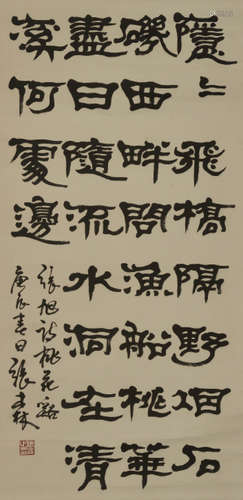 隱〻飛橋隔野烟石
磯西畔問漁船桃華
盡日隨流水洞在清
溪何處邊
張旭詩桃花谿
庚辰春日張